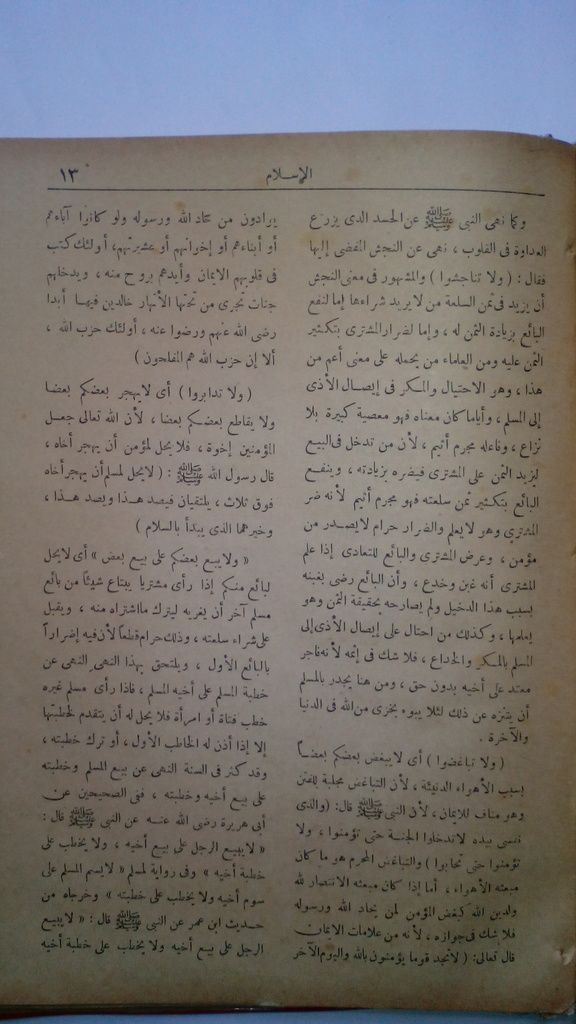 ١٣
الإسلام
وكما نهى النبي ﷺ عن الحسد الذى يزرع
العداوة فى القلوب ، نهى عن النجش المفضى إليها
فقال : ( ولا تناجشوا ) والمشهور فى معنى النجش
أن يزيد فى ثمن السلعة من لا يريد شراءها إما لنفع
البائع بزيادة الثمن له ، وإما لضرار المشترى بتكثير
الثمن عليه ومن العلماء من يحمله على معنى أعم من
هذا ، وهو الاحتيال والمكر فى إيصال الأذى
إلى المسلم ، وأياما كان معناه فهو معصية كبيرة بلا
نزاع ، وفاعله مجرم أثيم ، لأن من تدخل فى البيع
ليزيد الثمن على المشترى فيضره بزيادته ، وينفع
البائع بتكثير ثمن سلعته فهو مجرم أثيم لأنه ضر
المشترى وهو لا يعلم والضرار حرام لا يصدر من
مؤمن ، وعرض المشترى والبائع للتعادى إذا علم
المشترى أنه غبن وخدع ، وأن البائع رضى بغبنه
بسبب هذا الدخيل ولم يصارحه بحقيقة الثمن وهو
يعلمها ، وكذلك من احتال على إيصال الأذى إلى
المسلم بالمكر والخداع ، فلا شك فى إثمه لأنه فاجر
معتد على أخيه بدون حق ، ومن هنا يجدر بالمسلم
أن يتنزه عن ذلك لئلا يبوء بخزى من الله فى الدنيا
والآخرة .
( ولا تباغضوا ) أى لا يبغض بعضكم بعضاً
بسبب الأهواء الدنيئة ، لأن التباغض مجلبة للفتن
وهو مناف للايمان ، لأن النبى ﷺ قال : (والذى
نفسى بيده لا تدخلوا الجنة حتى تؤمنوا ، ولا
تؤمنوا حتى تحابوا ) والتباغض المحرم هو ما كان
مبعثه الأهواء ، أما إذا كان مبعثه الانتصار لله
ولدين الله كبغض المؤمن لمن يحاد الله ورسوله
فلا شك فى جوازه ، لأنه من علامات الايمان
قال تعالى: ( لا تجد قوما يؤمنون بالله واليوم الآخر
يوادون من حاد الله ورسوله ولو كانوا آباءهم
أو أبناءهم أو إخوانهم أو عشيرتهم، أولئك كتب
فى قلوبهم الايمان وأيدهم بروح منه ، ويدخلهم
جنات تجرى من تحتها الأنهار خالدين فيها أبدا
رضى الله عنهم ورضوا عنه ، أولئك حزب الله ،
ألا إن حزب الله هم المفلحون )
( ولا تدابروا ) أى لا يهجر بعضكم بعضا
ولا يقاطع بعضكم بعضا ، لأن الله تعالى جعل
المؤمنين إخوة ، فلا يحل لمؤمن أن يهجر أخاه ،
قال رسول الله ﷺ : ( لا يحل لمسلم أن يهجر أخاه
فوق ثلاث ، يلتقيان فيصد هذا ويصد هذا ،
وخيرهما الذى يبدأ بالسلام )
« ولا يبع بعضكم على بيع بعض » أى لا يحل
لبائع منكم إذا رأى مشتريا يبتاع شيئا من بائع
مسلم آخر أن يغريه ليترك ما اشتراه منه ، ويقبل
على شراء سلعته ، وذلك حرام قطعاً لأن فيه إضراراً
بالبائع الأول ، ويلتحق بهذا النهى النهى عن
خطبة المسلم على أخيه المسلم ، فاذا رأى مسلم غيره
خطب فتاة أو امرأة فلا يحل له أن يتقدم لخطبتها
إلا إذا أذن له الخاطب الأول ، أو ترك خطبته ،
وقد كثر فى السنة النهى عن بيع المسلم وخطبته
على بيع أخيه وخطبته ، ففى الصحيحين عن
أبى هريرة رضى الله عنه عن النبى ﷺ قال :
« لا يبيع الرجل على بيع أخيه ، ولا يخطب على
خطبة أخيه » وفى رواية لمسلم « لا يسم المسلم على
سوم أخيه ولا يخطب على خطبته » وخرجاه من
حديث ابن عمر عن النبى ﷺ قال : « لا يبيع
الرجل على بيع أخيه ولا يخطب على خطبة أخيه